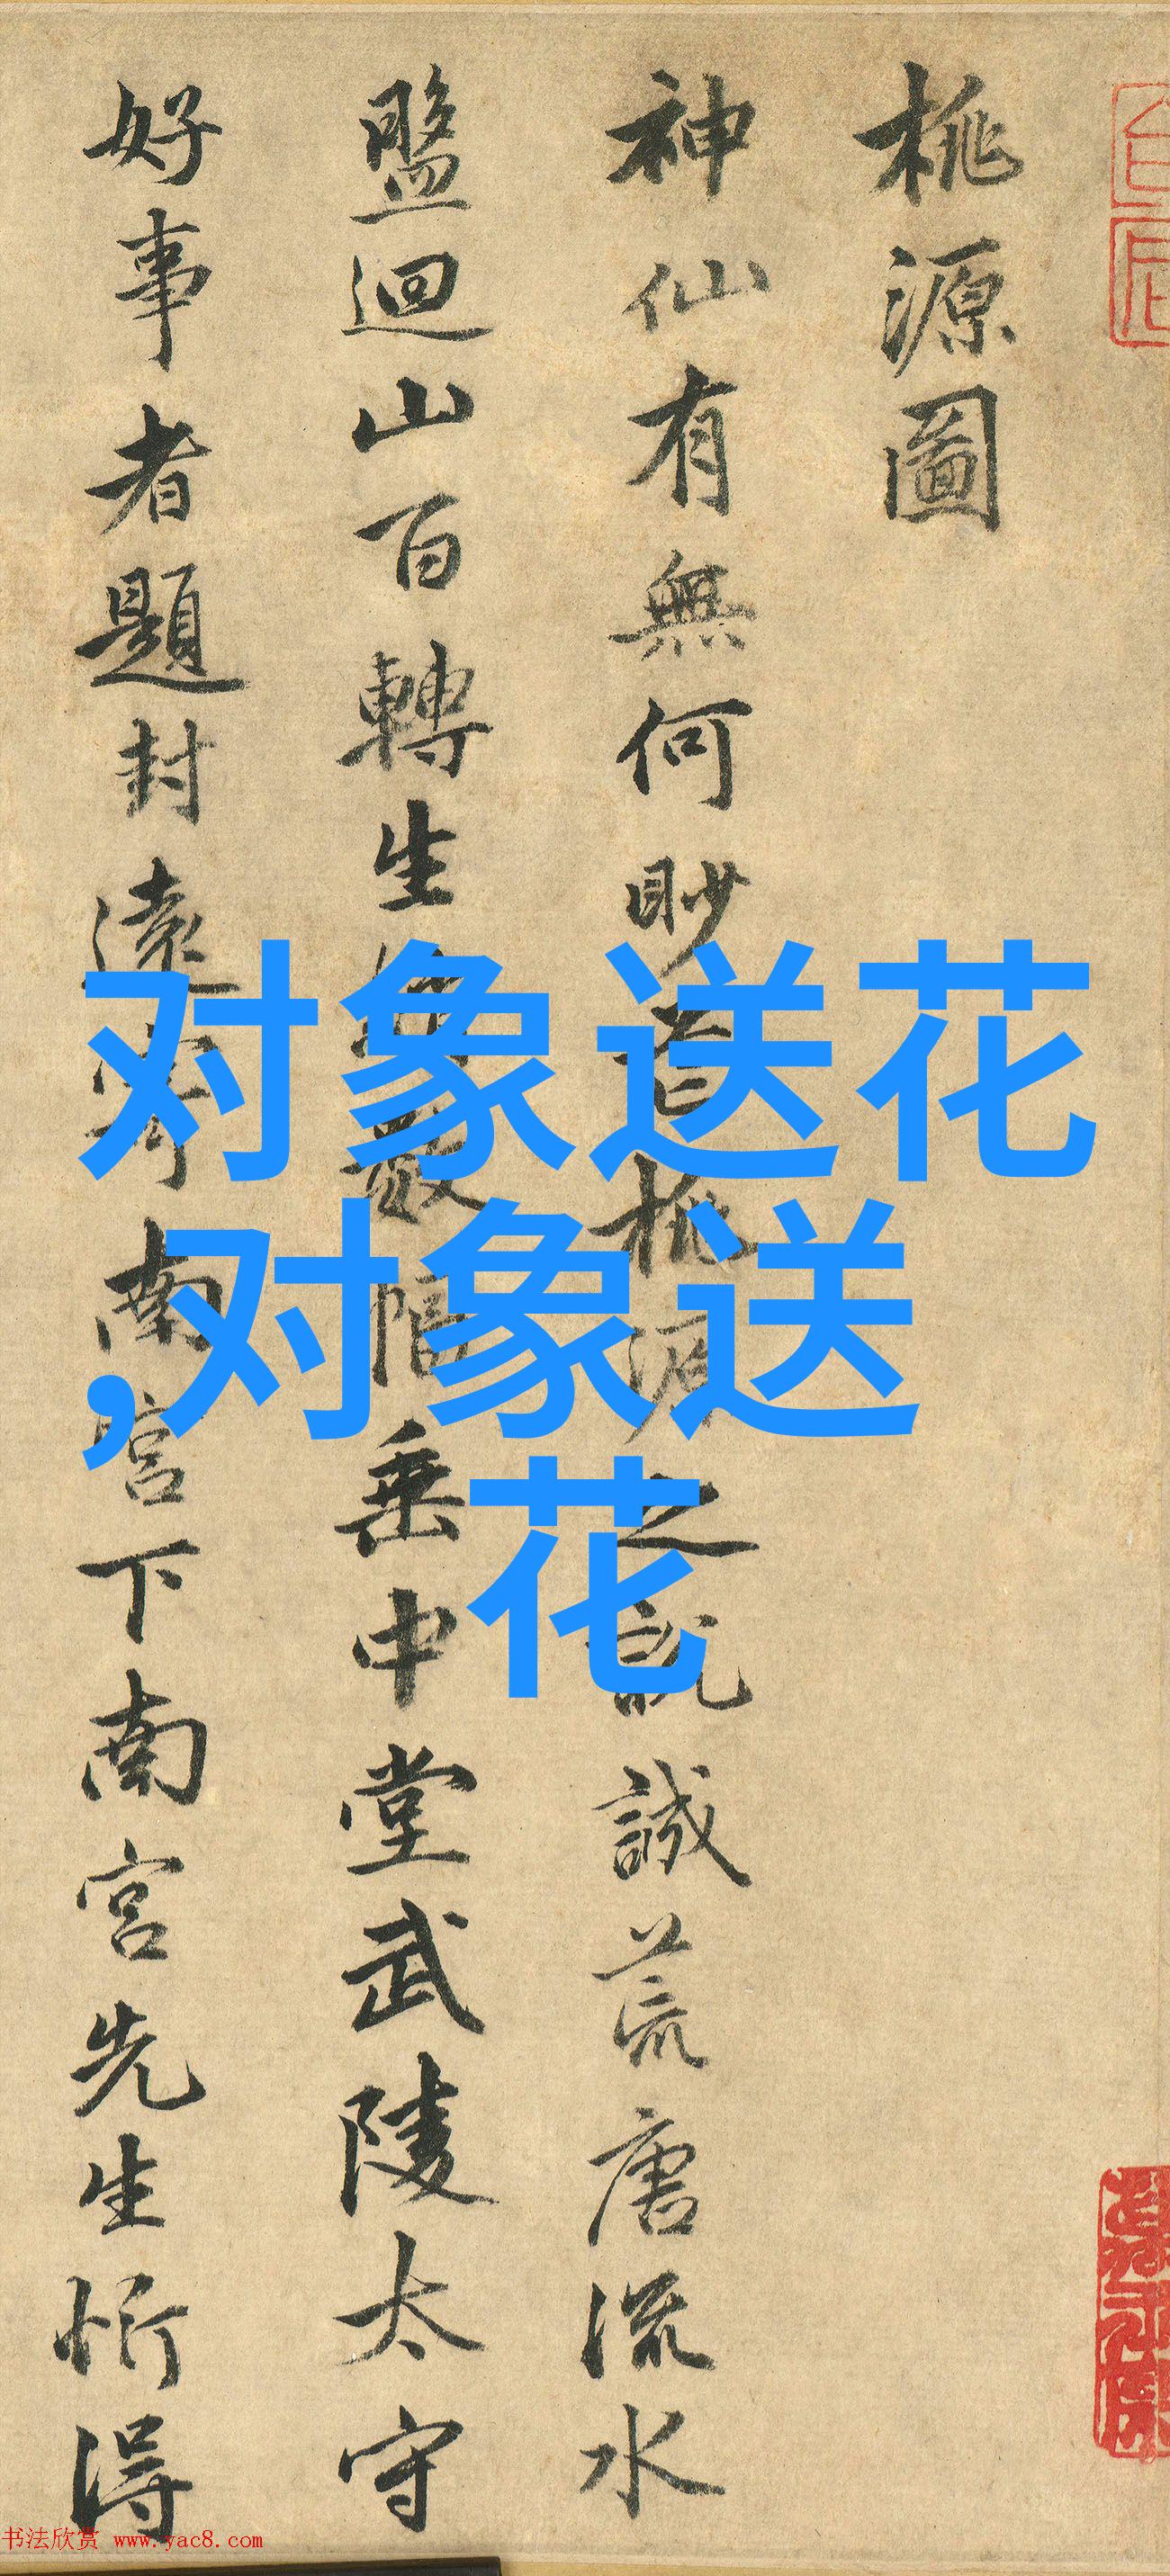 桃源圖
神仙有無何眇芒桃源之說誠荒唐流水
盤迴山百轉生綃數幅垂中堂武陵太守
好事者題封遠寄南宮下南宮先生忻得
对象送花
,对象送
花
书法欣赏 www.yac8.com